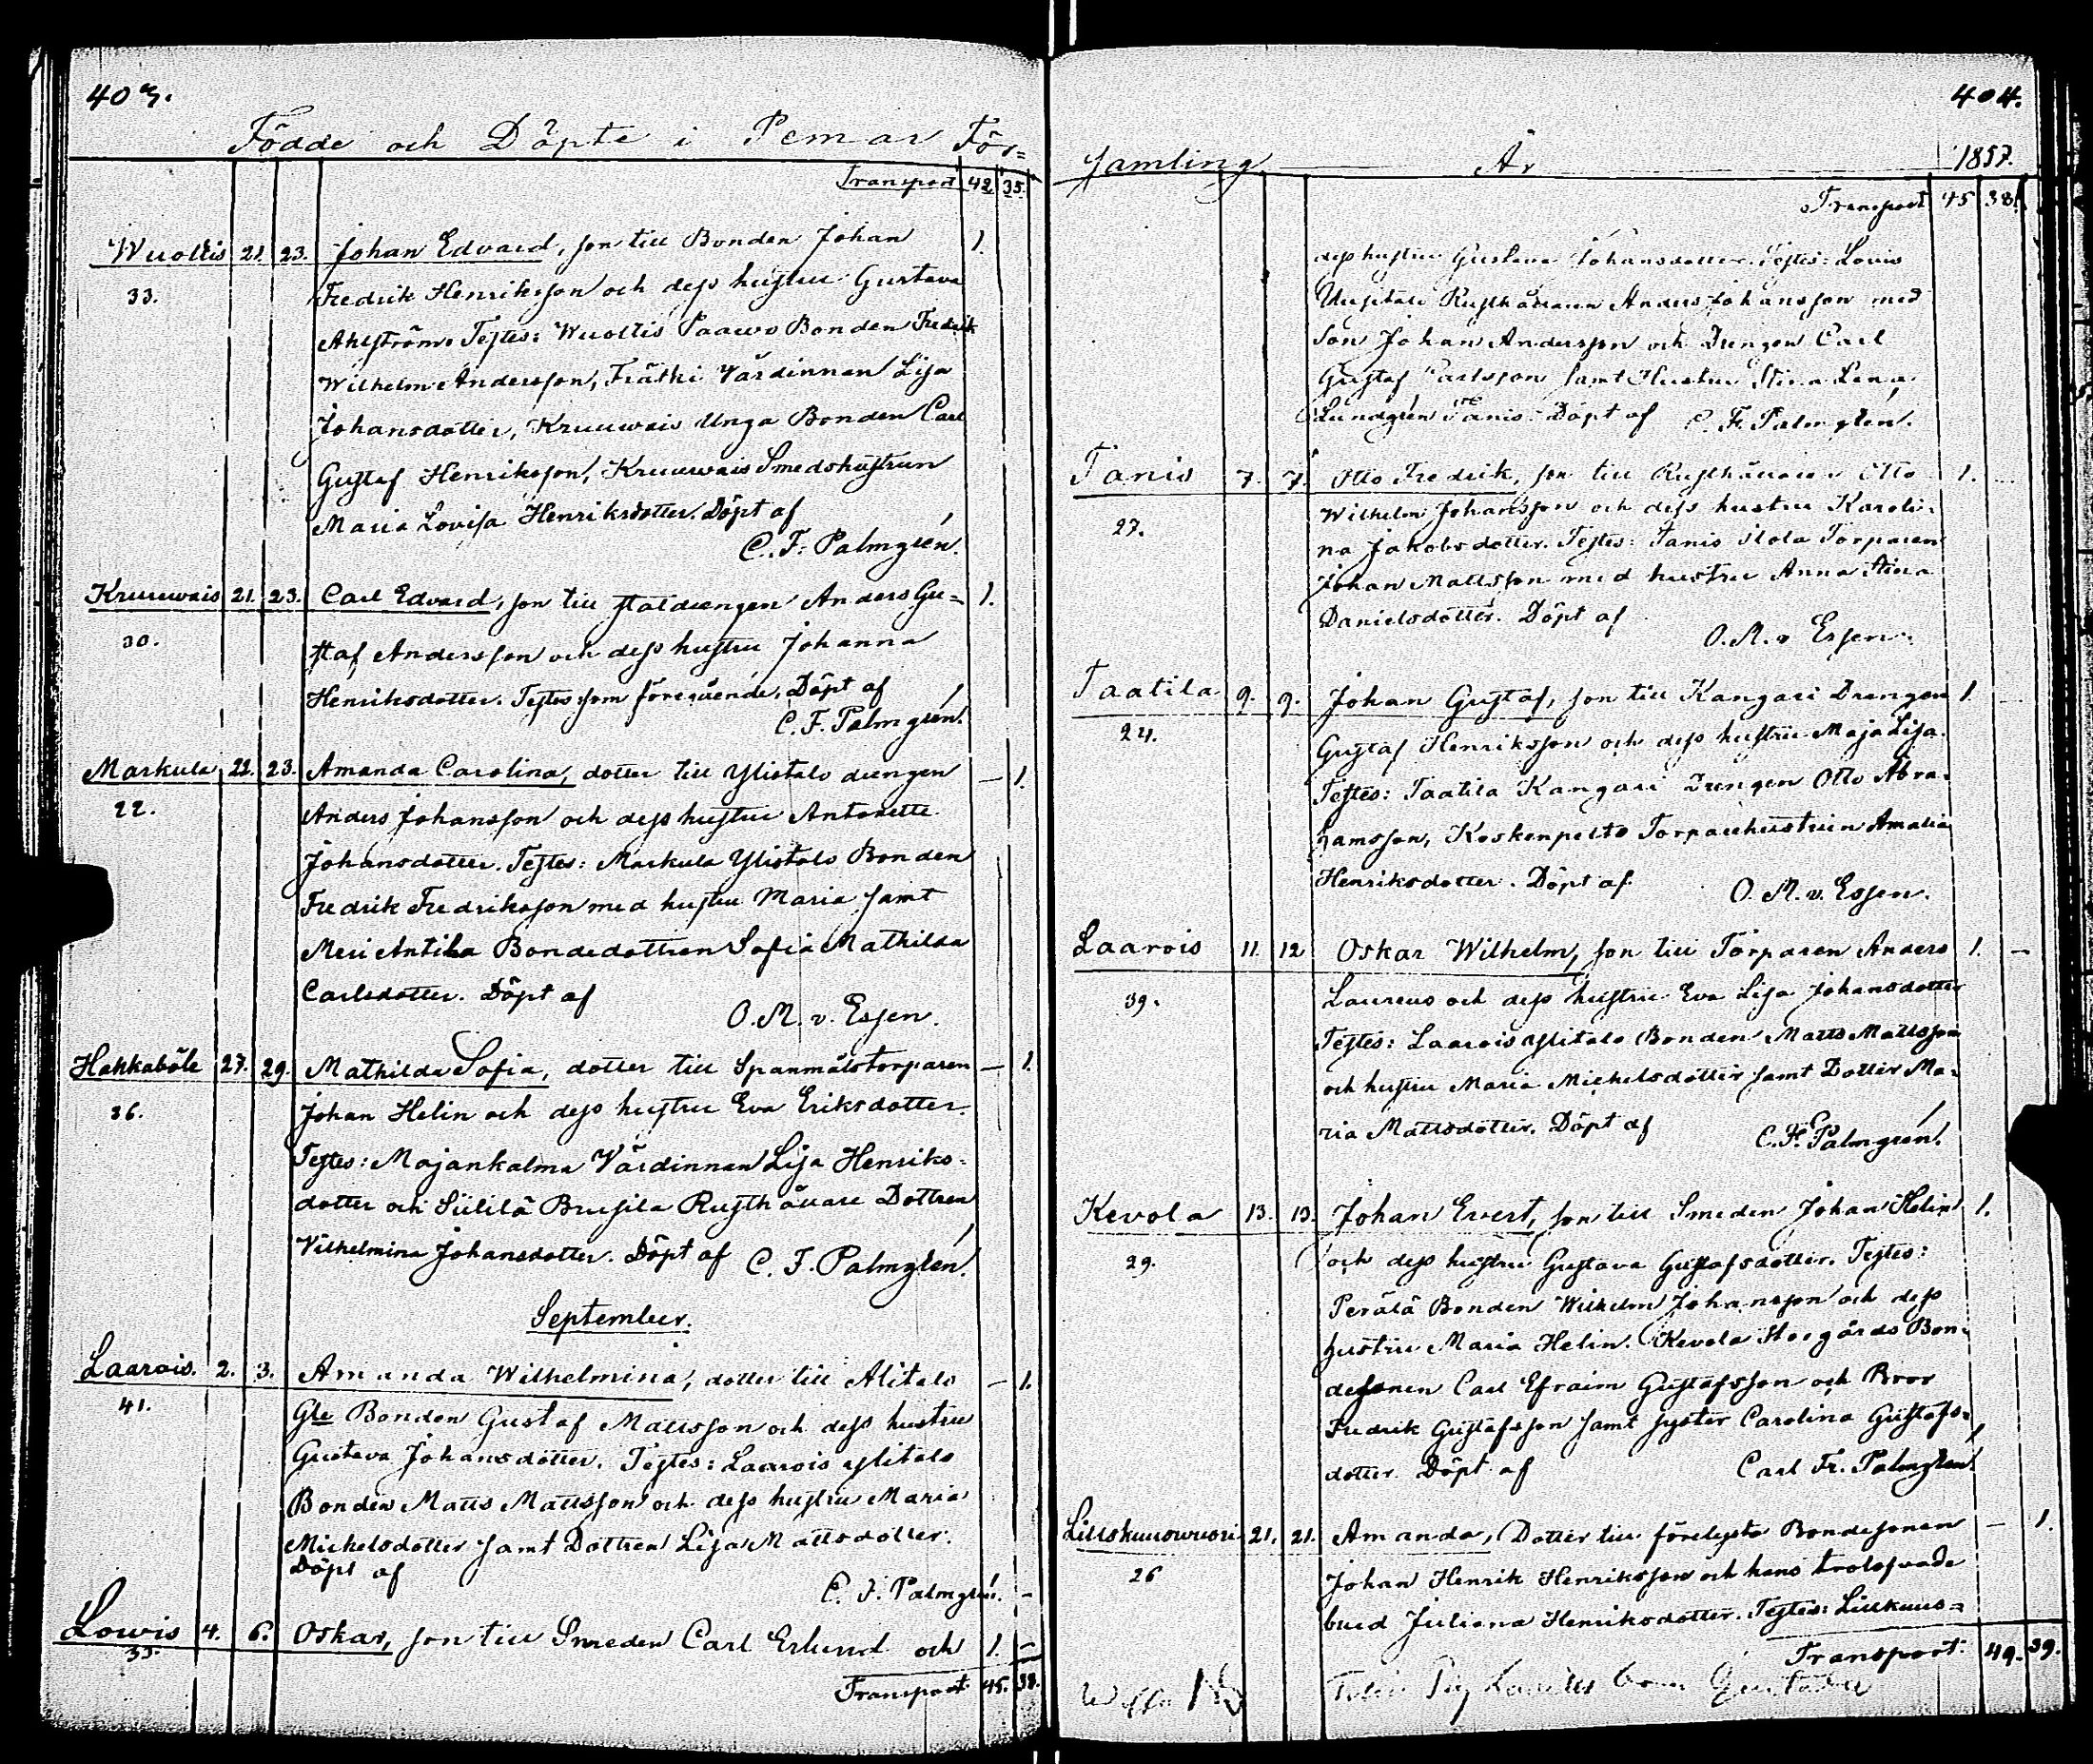 403.
Födde och Döpte i Pemar För=
Transport 42 35.
Wuoltis 21. 23. Johan Edvard, son till Bonden Johan 1.
33. Fredrik Henriksson och dess hustru Gustava
Ahlström. Testes: Wuoltis Paawo Bonden Fredrik
Wilhelm Andersson, Träthi Värdinnan Lisa
Johansdotter, Kruuwais Unga Bonden Carl
Gustaf Henriksson, Kruuwais Smedshustrun
Maria Lovisa Henriksdotter. Döpt af
C. F. Palmgrén.
Kruuwais 21. 23. Carl Edvard, son till Staldrengen Anders Gu= 1.
30. staf Andersson och dess hustru Johanna
Henriksdotter. Testes som föregående. Döpt af
C. F. Palmgrén.
Markula 22. 23. Amanda Carolina, dotter till Ylistalo drengen — 1.
22. Anders Johansson och dess hustru Antonette
Johansdotter. Testes: Markula Ylistalo Bonden
Fredrik Fredriksson med hustru Maria samt
Meri Antila Bondedottren Sofia Mathilda
Carlsdotter. Döpt af
O. M. v. Essen.
Hakkaböle 27. 29. Mathilda Sofia, dotter till Spanmålstorparen — 1.
36. Johan Helin och dess hustru Eva Eriksdotter.
Testes: Majankalma Värdinnan Lisa Henriks=
dotter och Siililä Brusila Rusthållare Dottren
Vilhelmina Johansdotter. Döpt af C. F. Palmgrén.
September.
Laarois. 2. 3. Amanda Wilhelmina, dotter till Alitalo — 1.
41. Gle Bonden Gustaf Mattsson och dess hustru
Gustava Johansdotter. Testes: Laarois Ylitalo
Bonden Matts Mattsson och dess hustru Maria
Michelsdotter samt Dottren Lisa Mattsdotter.
Döpt af
C. F. Palmgrén. -
Lowis 4. 6. Oskar, son till Smeden Carl Erlund och 1. -
35.
Transport 45. 38.
404.
samling År 1857.
Transport 45 38.
dess hustru Gustava Johansdotter. Testes: Lowis
Uusitalo Rusthållaren Anders Johansson med
Son Johan Andersson och Drengen Carl
Gustaf Carlsson samt Hustru Stina Lena
Lundgrén Tanis. Döpt af C. F. Palmgrén.
Tanis 7. 7. Otto Fredrik, son till Rusthållaren Otto 1.
27. Wilhelm Johansson och dess hustru Karoli=
na Jakobsdotter. Testes: Tanis Ilola Torparen
Johan Mattsson med hustru Anna Stina
Danielsdotter. Döpt af
O. M. v Essen.
Taatila 9. 9. Johan Gustaf, son till Kangari Drengen 1.
24. Gustaf Henriksson och dess hustru Maja Lisa.
Testes: Taatila Kangari Drengen Otto Abra=
hamsson, Koskenpelto Torparehustrun Amalia
Henriksdotter. Döpt af
O. M. v. Essen.
Laarois 11. 12 Oskar Wilhelm, son till Torparen Anders 1. —
39. Laurens och dess hustru Eva Lisa Johansdotter
Testes: Laarois Ylitalo Bonden Matts Mattsson
och hustru Maria Michelsdotter samt Dotter Ma=
ria Mattsdotter. Döpt af C. F. Palmgrén.
Kevola 13. 13. Johan Evert, son till Smeden Johan Helin 1.
29. och dess hustru Gustava Gustafsdotter. Testes:
Perälä Bonden Wilhelm Johansson och dess
hustru Maria Helin. Kevola Storgårds Bon=
desonen Carl Efraim Gustafsson och Bror
Fredrik Gustafsson samt syster Carolina Gustafs=
dotter. Döpt af Carl Fr. Palmgrén.
21. 21. Amanda, Dotter till förelysta Bondesonen — 1.
26 Johan Henrik Henriksson och hans trolofvade
brud Juliana Henriksdotter. Testes:
Transport 49. 39.